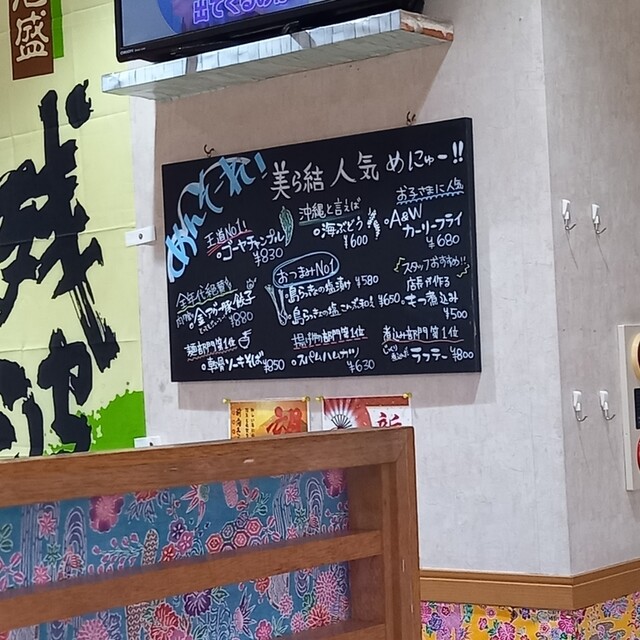 めんそーれ!
美ら結 人気 めにゅー!!
王道No.1
・ゴーヤチャンプル
¥830
沖縄と言えば
・海ぶどう
¥600
お子さまに人気
・A&W
カーリーフライ
¥680
おつまみNo1
・島らっきょの塩漬け ¥580
・島らっきょの塩こんぶ和え ¥650
スタッフおすすめ!!
店長が作る
もつ煮込み
¥500
全年代絶賛!
餃子
¥880
麺部門第1位
・軟骨ソーキそば ¥850
揚げ物部門第1位
・スパムハムカツ ¥630
煮込み部門第1位
ラフテー ¥800